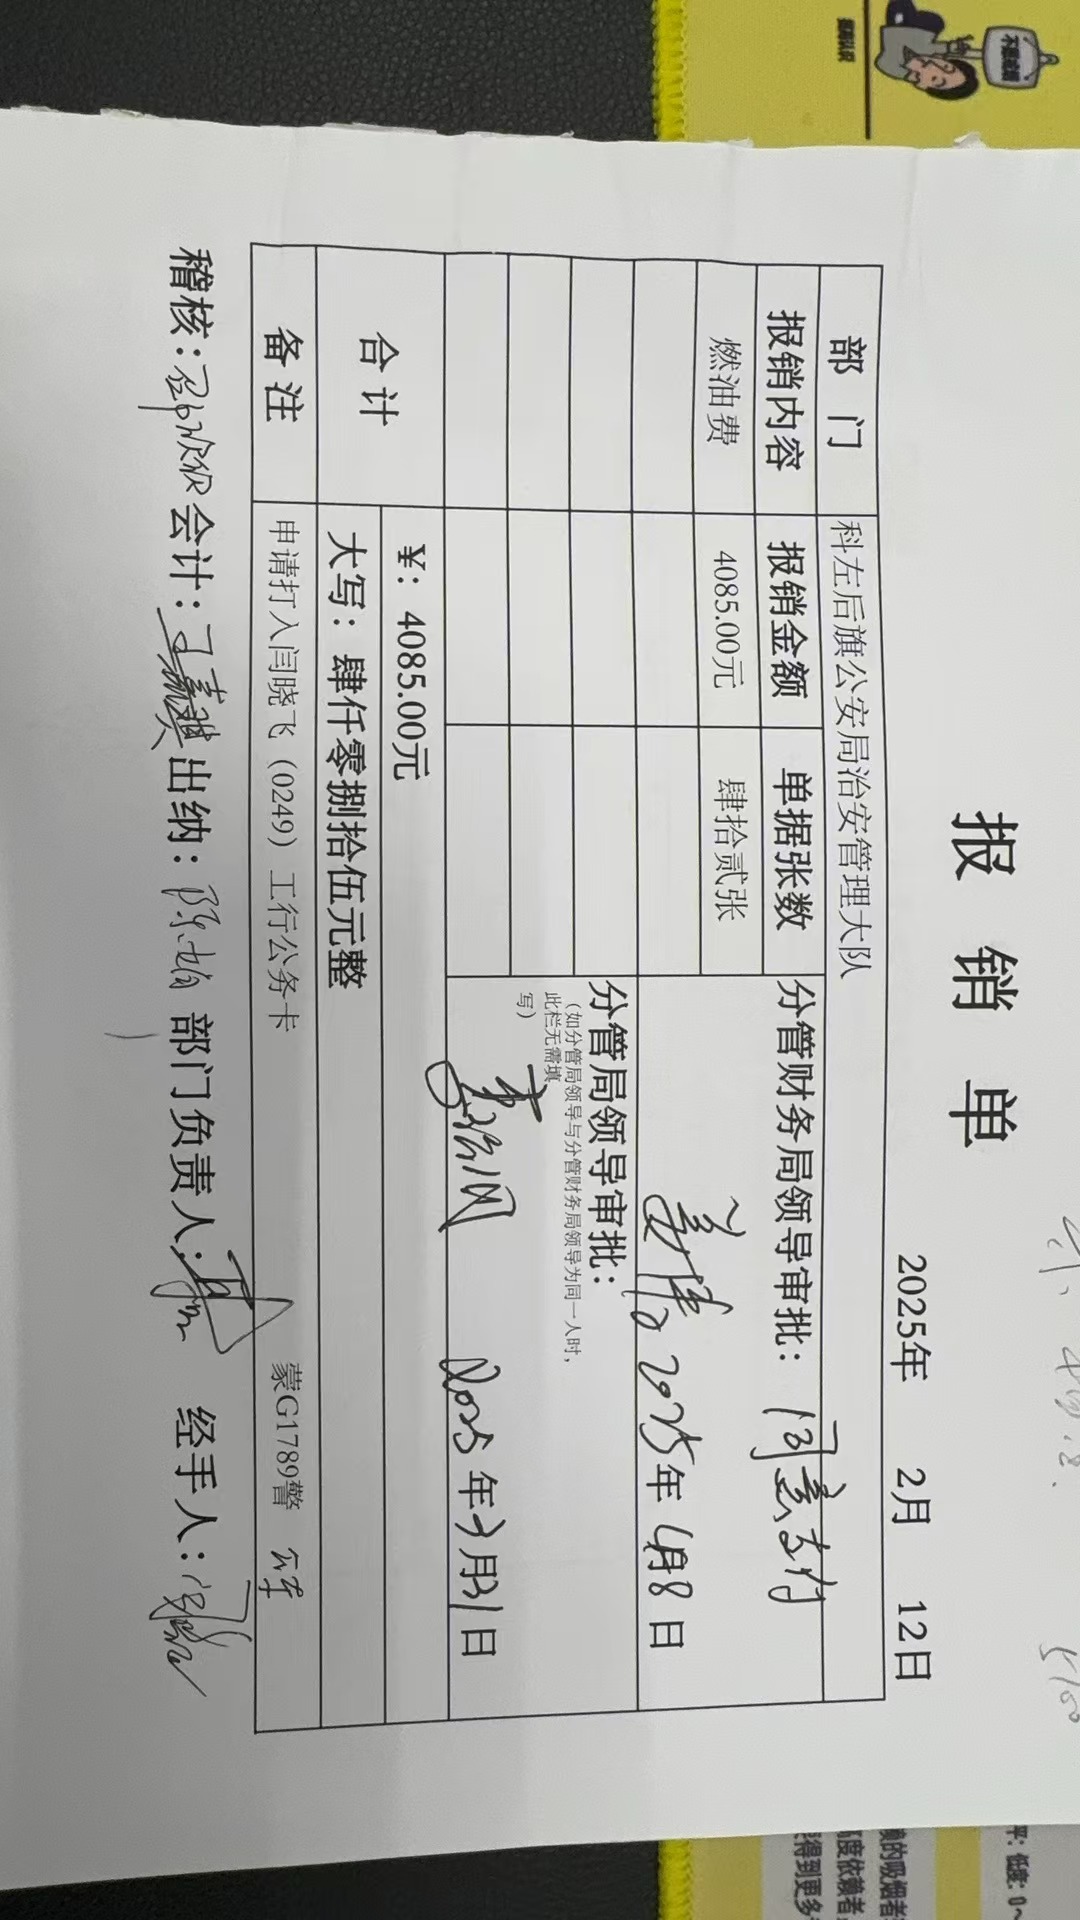 报 销 单
2025年 2月 12日
部 门 科左后旗公安局治安管理大队
报销内容 报销金额 单据张数 分管财务局领导审批：同意支付
燃油费 4085.00元 肆拾贰张
2025年4月8日
分管局领导审批：
（如分管局领导与分管财务局领导为同一人时，
此栏无需填
写）
2025年3月31日
合 计 ¥：4085.00元
大写：肆仟零捌拾伍元整
备 注 申请打入闫晓飞（0249）工行公务卡 蒙G1789警
稽核： 会计： 出纳： 部门负责人： 经手人：
不愿戒烟
平：低度：0~
赖的吸烟者
高度依赖者
得到更多